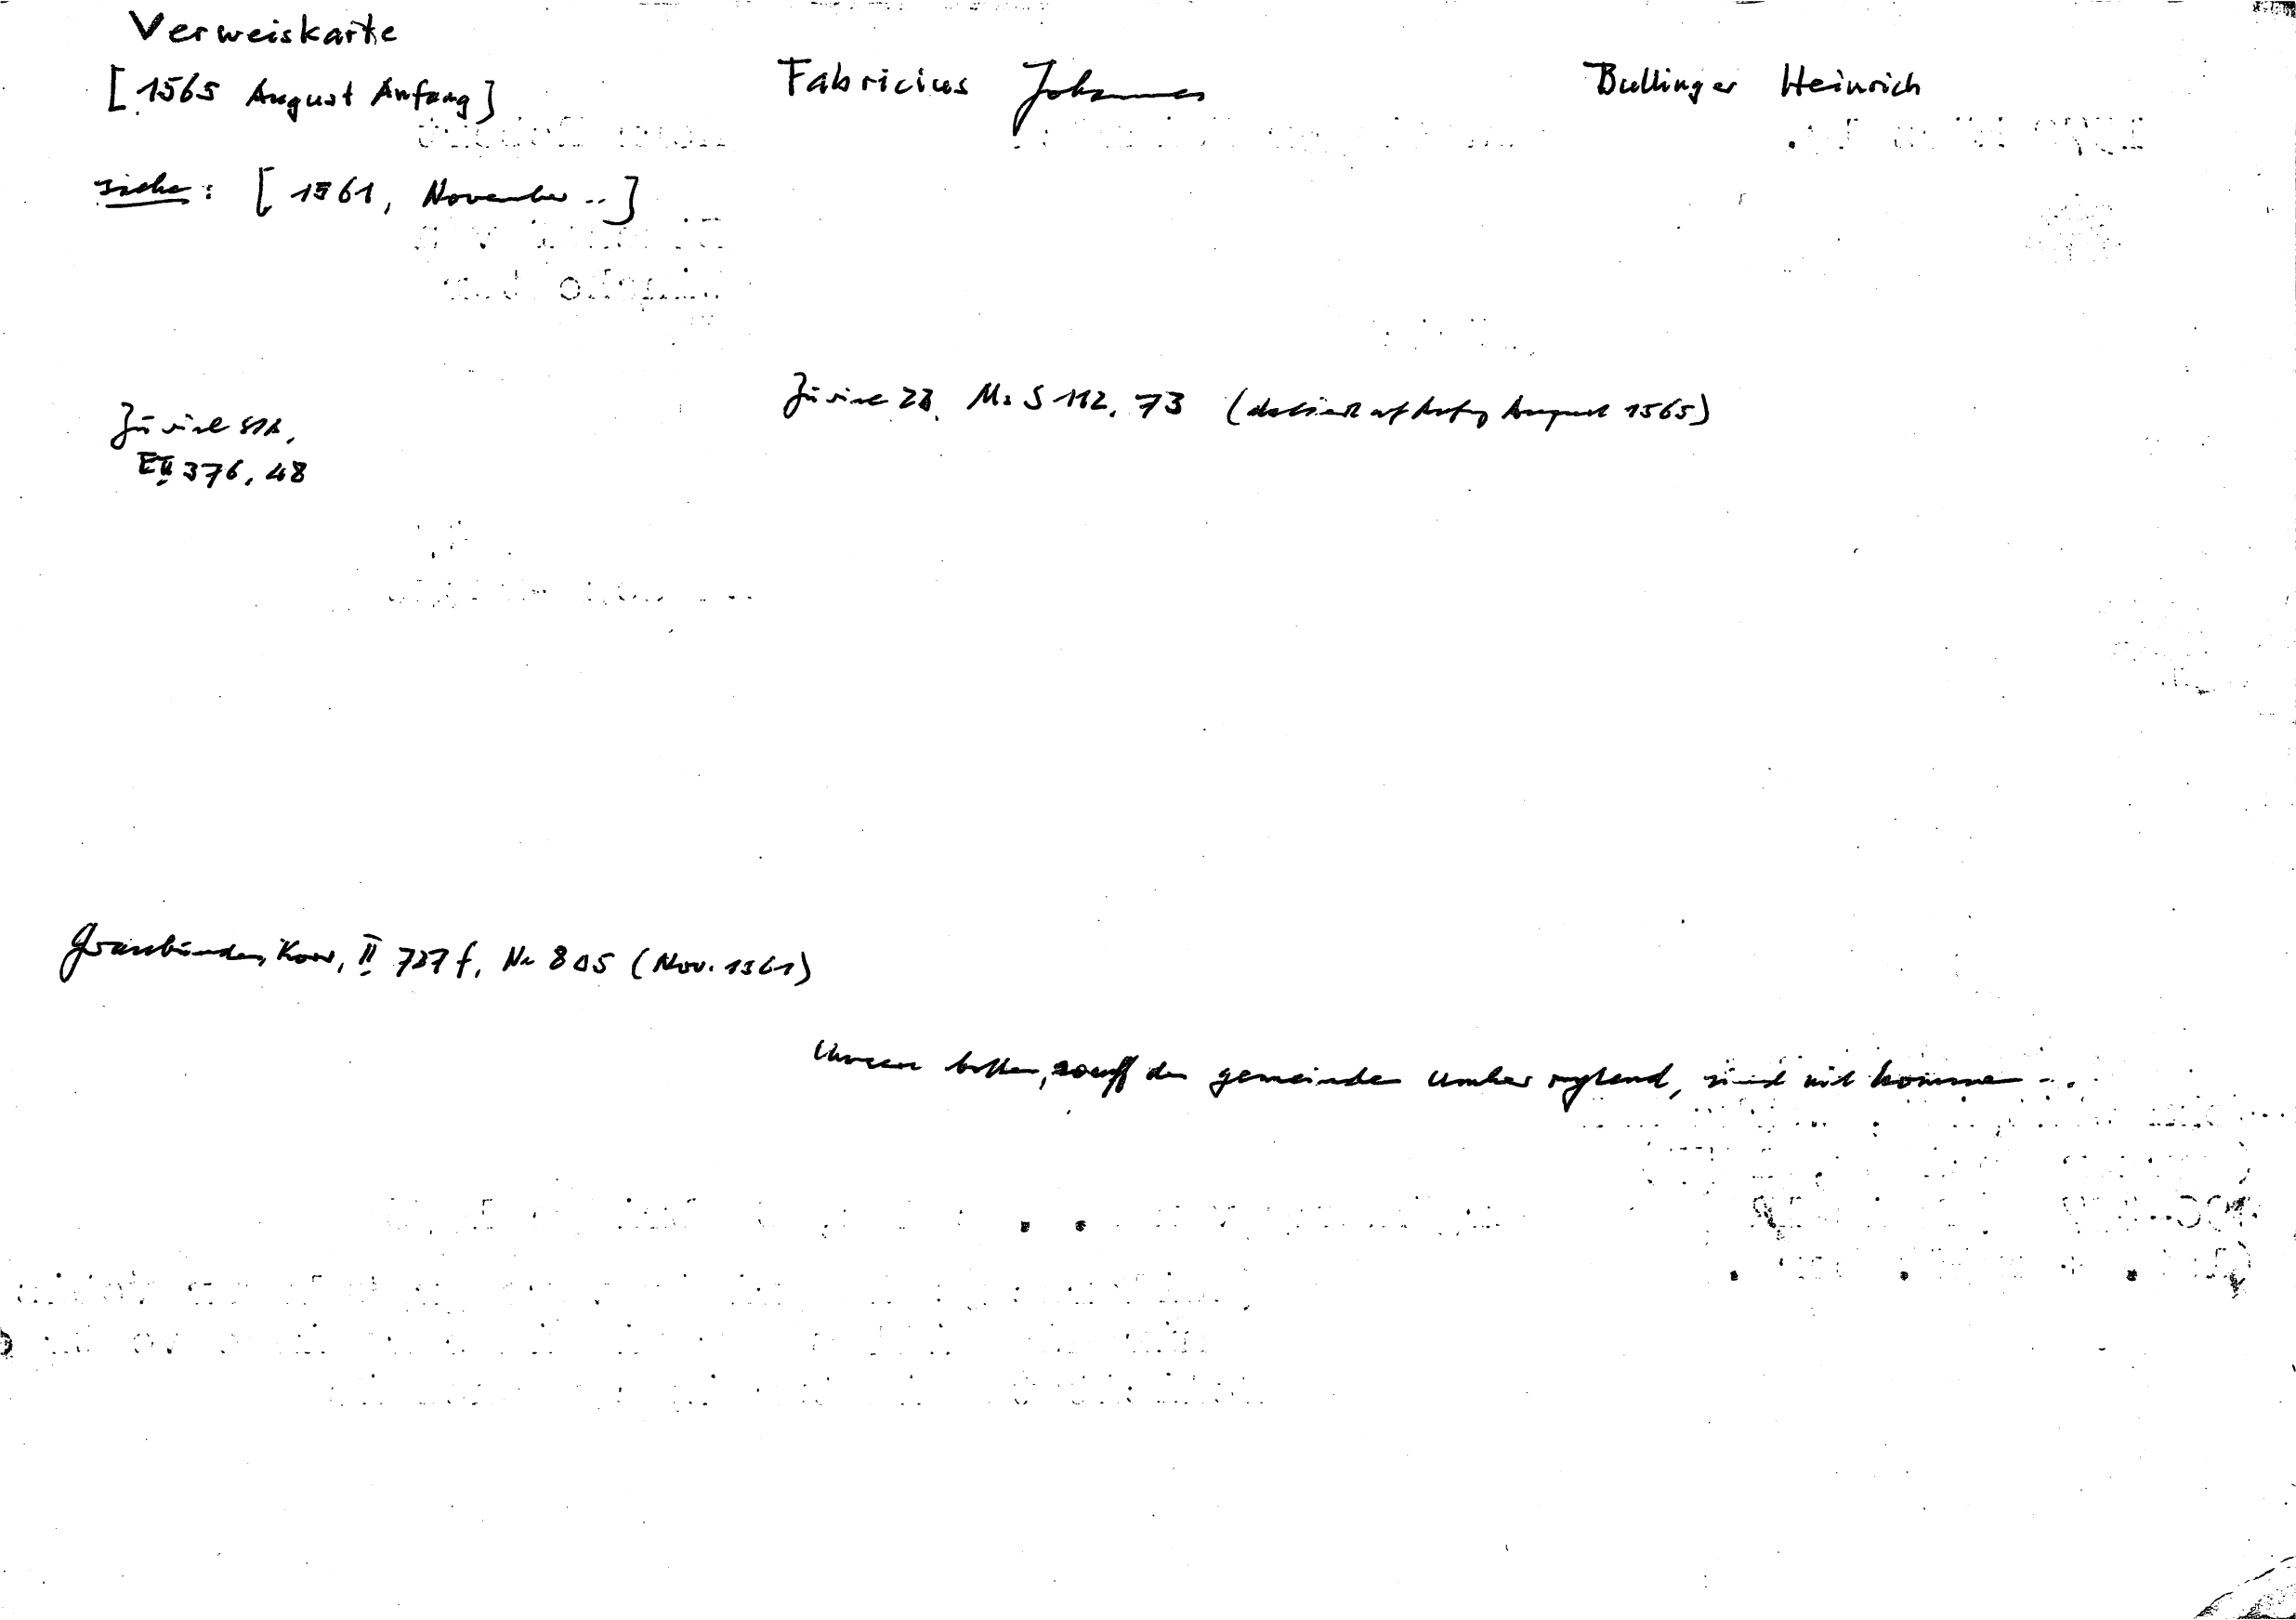 Verweiskarte
[1565 August Anfang]
Fabricius Johannes
Bullinger Heinrich
siehe: [1561, November ..]
Zürich StA,
E II 376, 48
Zürich ZB, Ms S 112, 73 (datiert auf Anfg August 1565)
Graubünden, Korr, II 727 f, Nr 805 (Nov. 1561)
Unsere botten, so uff den gemeinden umher rytend, sind nit kommen ...